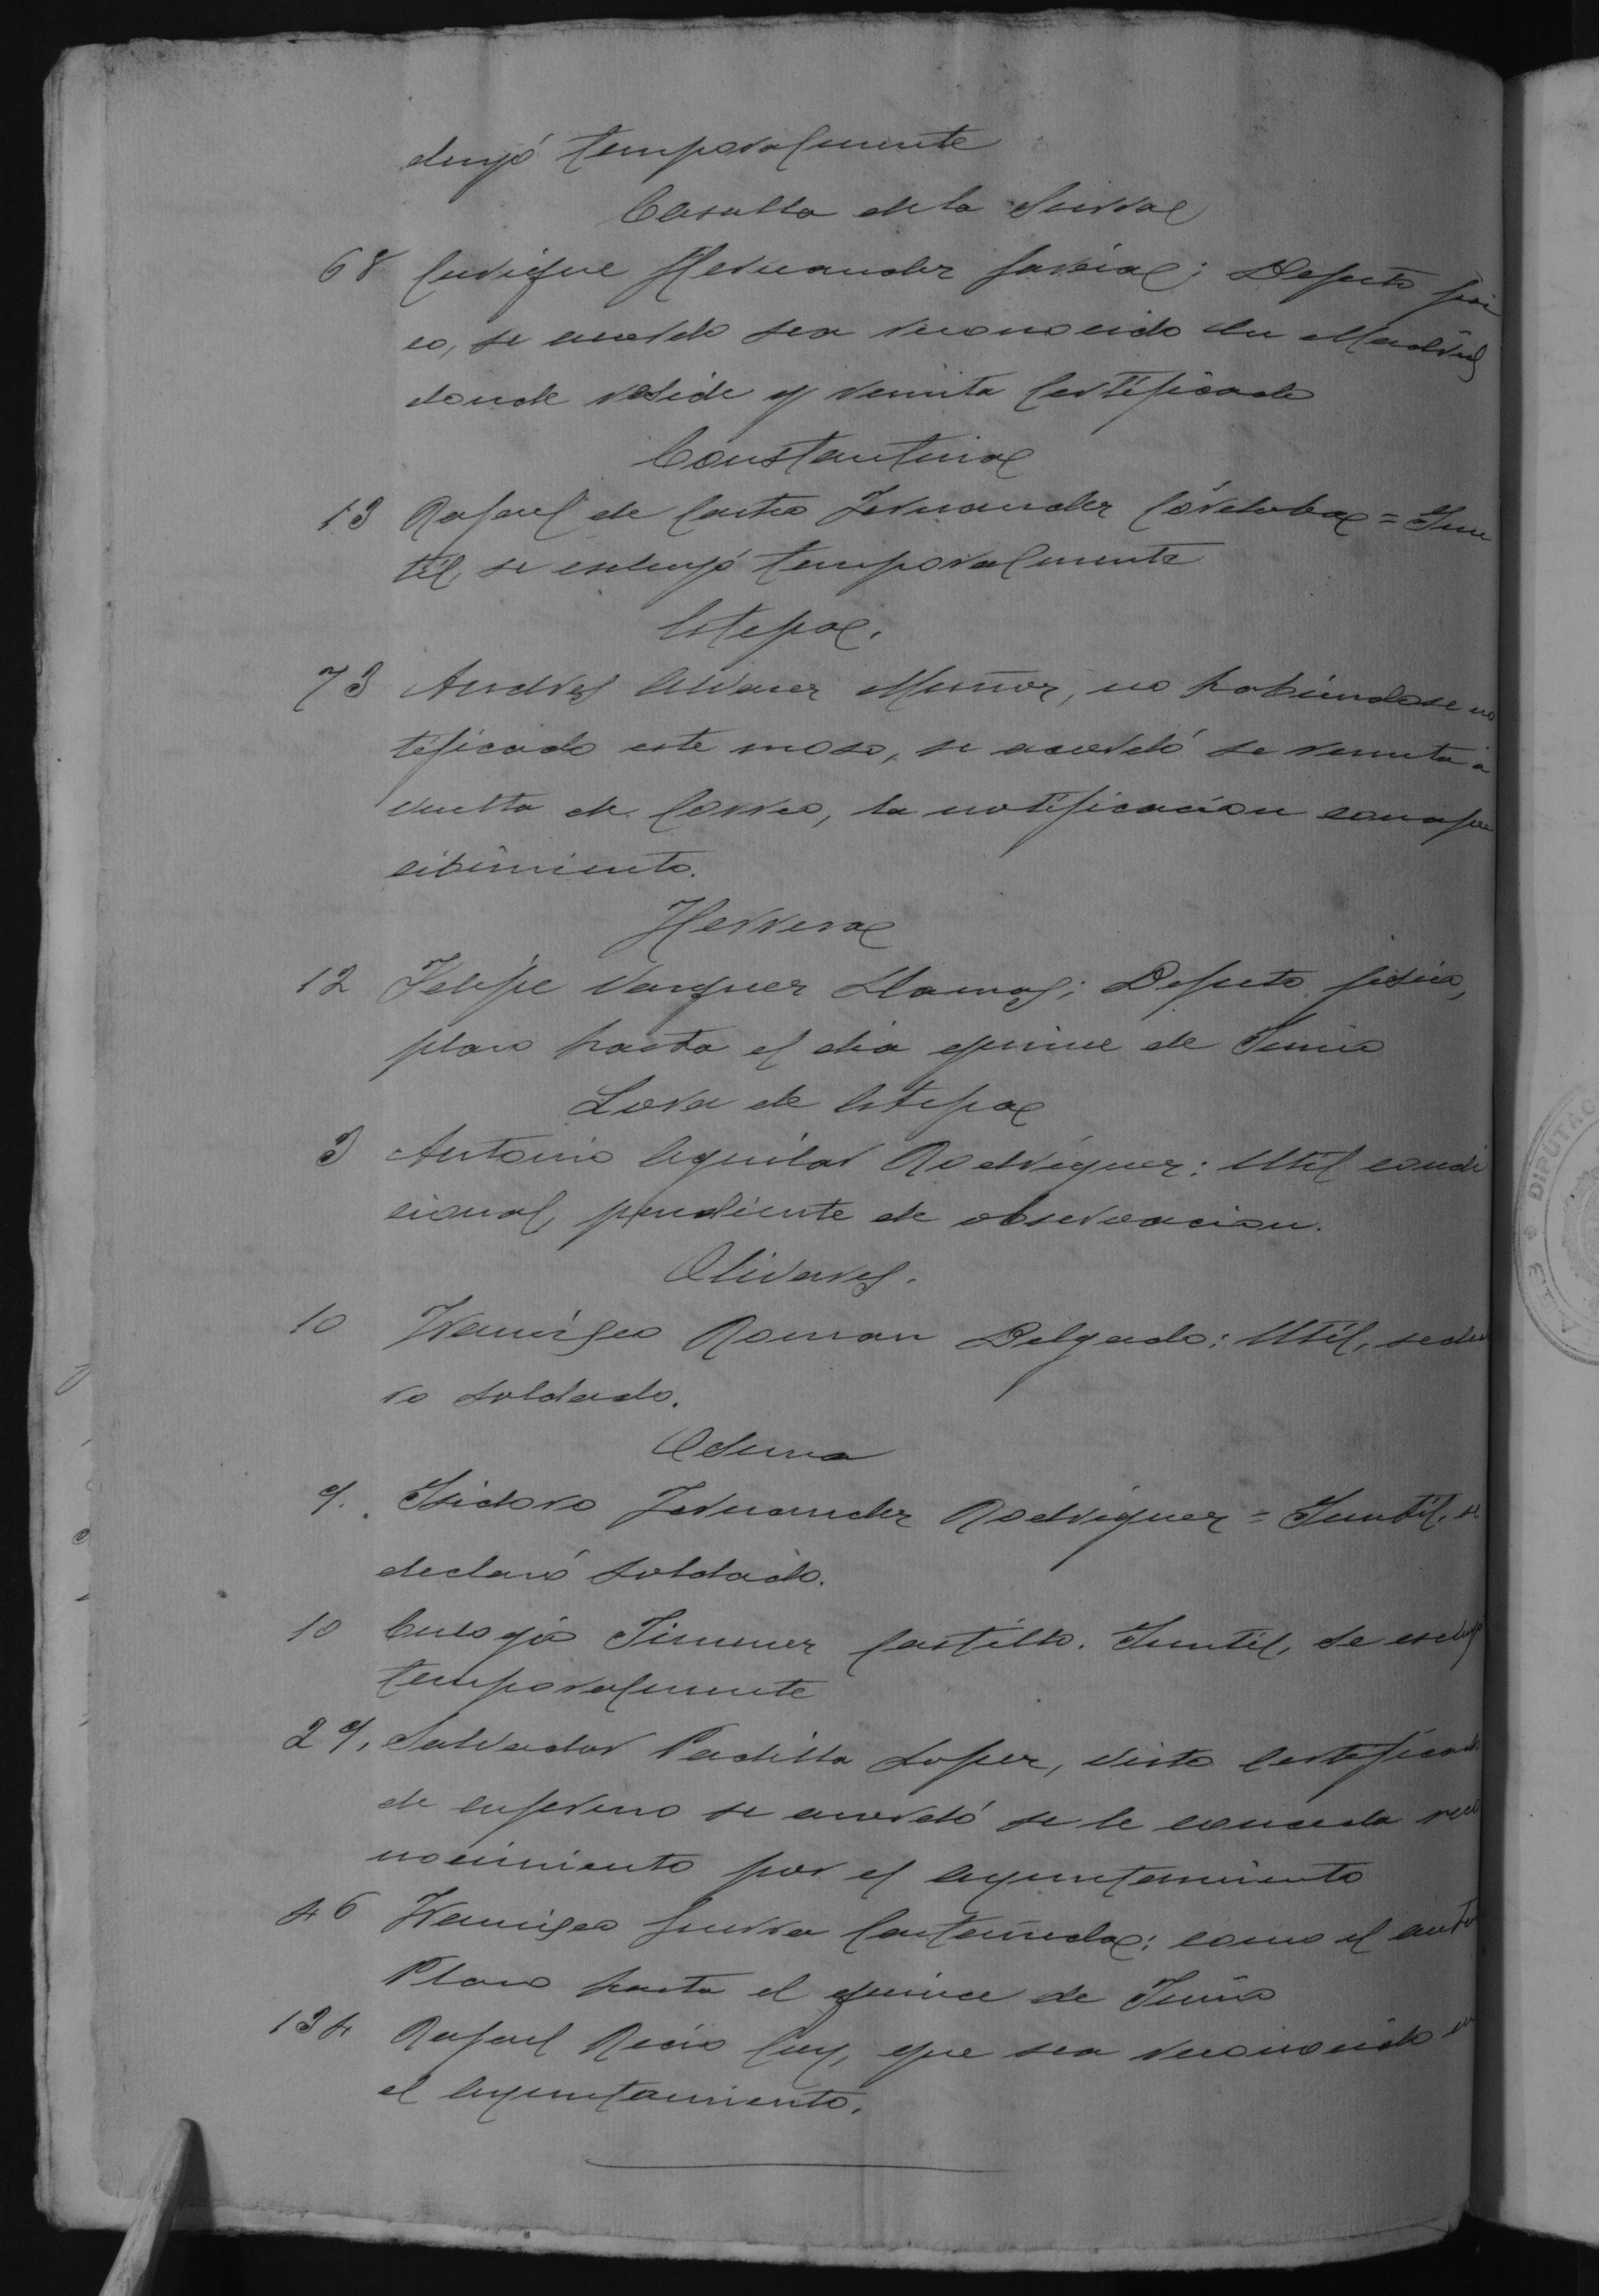 cluyó temporalmente
Cazalla de la Sierra
68 Enrique Hernandez Garcia; Defecto físi
co, se acordo sea reconocido en Madrid
donde reside y remita certificado
Constantina
13 Rafael de Castro Fernandez Córdoba = Inu
til, se excluyó temporalmente
Estepa.
73 Andres Alvarez Muñoz, no habiendose no
tificado este mozo, se acordó se remita á
vuelta de Correo, la notificacion con aper
cibimiento.
Herrera
12 Felipe Vazquez Llamas; Defecto fisico,
plazo hasta el dia quince de Junio
Lora de Estepa
3 Antonio Aguilar Rodriguez: Util condi
cional, pendiente de observacion.
Olivares.
10 Francisco Roman Delgado: Util, se decla
ro soldado.
Osuna
9. Isidoro Fernandez Rodriguez = Inutil, se
declaró soldado.
10 Eulogio Jimenez Castillo. Inutil, se excluyó
temporalmente
29, Salvador Padilla Lopez, visto certificado
de enfermo se acordó se le conceda reco
nocimiento por el Ayuntamiento
46 Francisco Guerra Castañeda: como el antor
Plazo hasta el quince de Junio
134 Rafael Recio Cuy, que sea reconocido en
el Ayuntamiento.
DIPUTAC